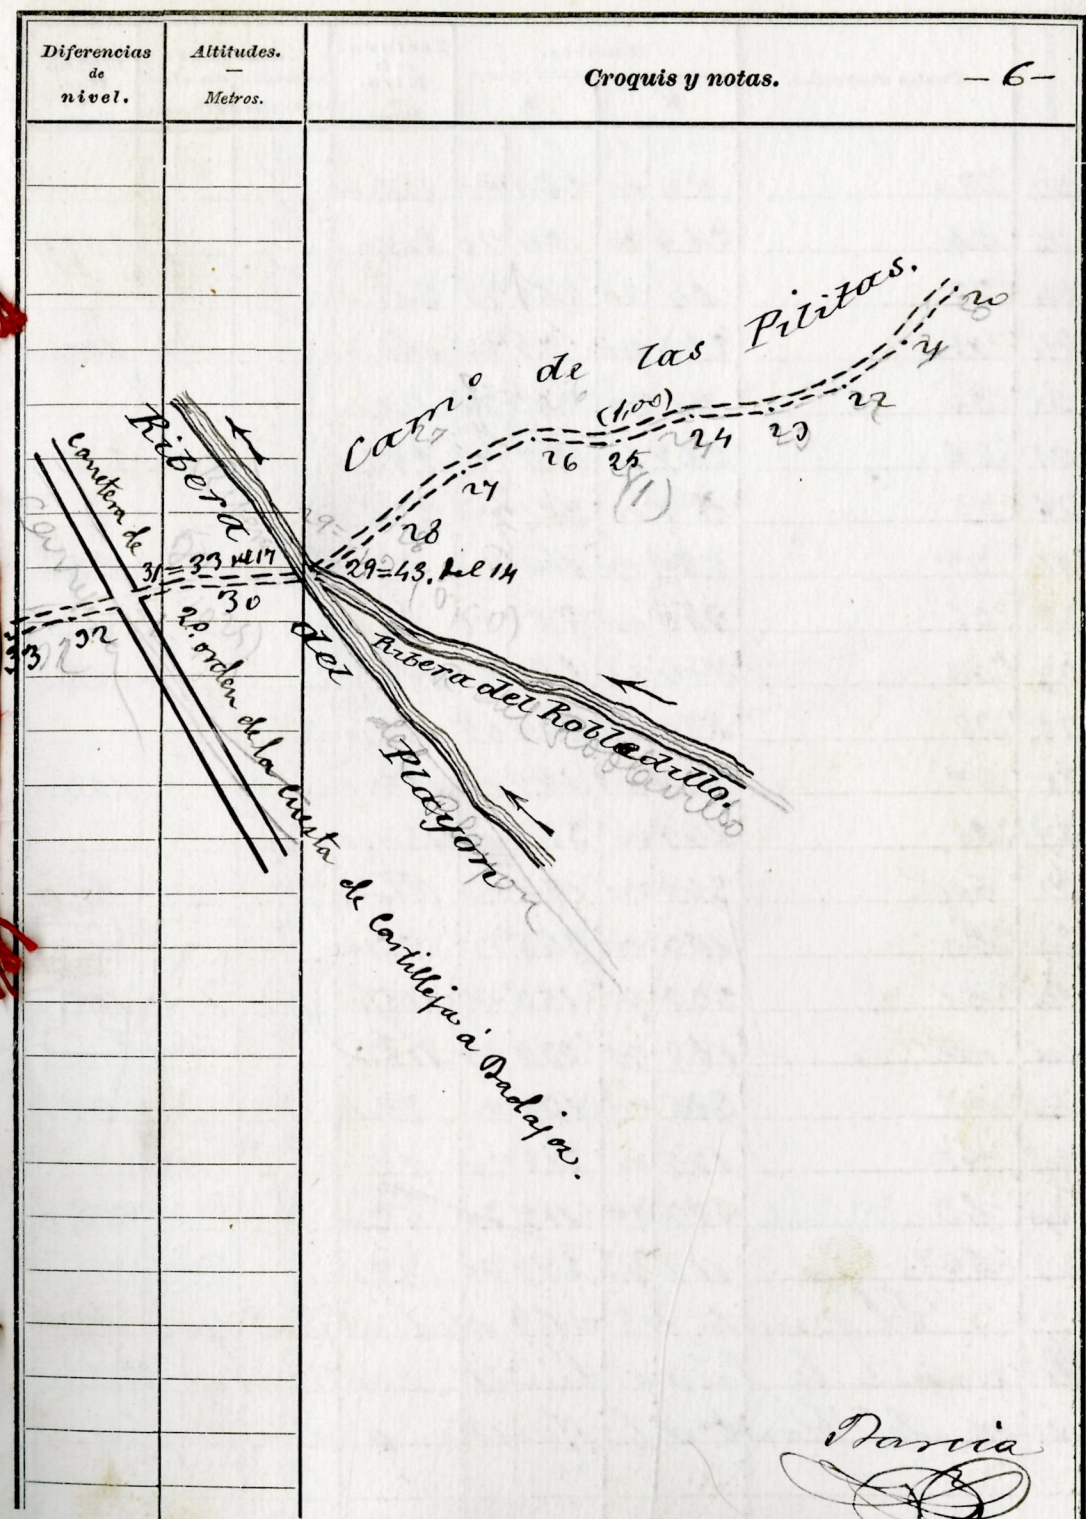 Diferencias
de
nivel.
Altitudes.
Metros.
Croquis y notas.
-6-
Cam.º de las Pilitas.
20
21
22
23
24
(1,00)
25
(1)
26
27
28
29=43. del 14
30
31=33 del 17
32
33
Ribera del Playon
Ribera del Robledillo.
Carretera de 2º. orden de la Cuesta de Castilleja á Badajoz.
Barcia